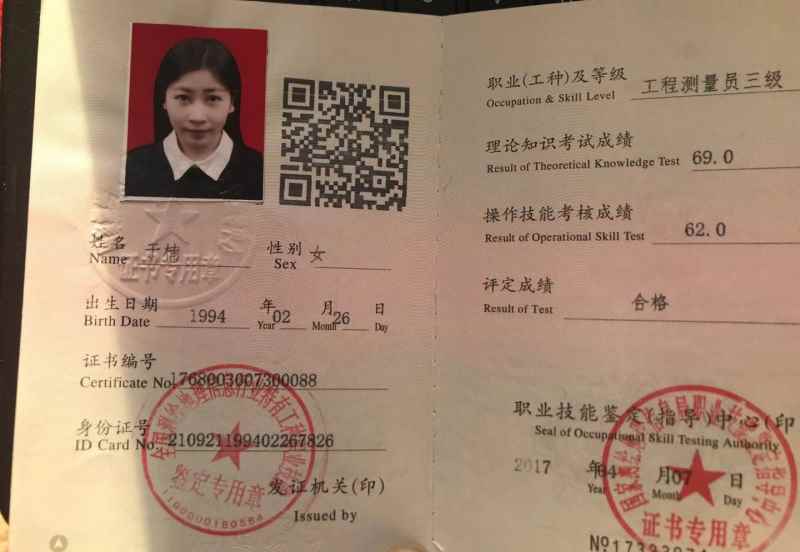 姓名 于楠 性别 女
Name Sex
出生日期 1994 年 02 月 26 日
Birth Date Year Month Day
证书编号
Certificate No. 1768003007300088
身份证号
ID Card No. 210921199402267826
发证机关(印)
Issued by
证书专用章
鉴定专用章
职业(工种)及等级 工程测量员三级
Occupation & Skill Level
理论知识考试成绩
Result of Theoretical Knowledge Test 69.0
操作技能考核成绩
Result of Operational Skill Test 62.0
评定成绩 合格
Result of Test
职业技能鉴定(指导)中心(印
Seal of Occupational Skill Testing Authority
2017 年 04 月 07 日
Year Month Day
证书专用章